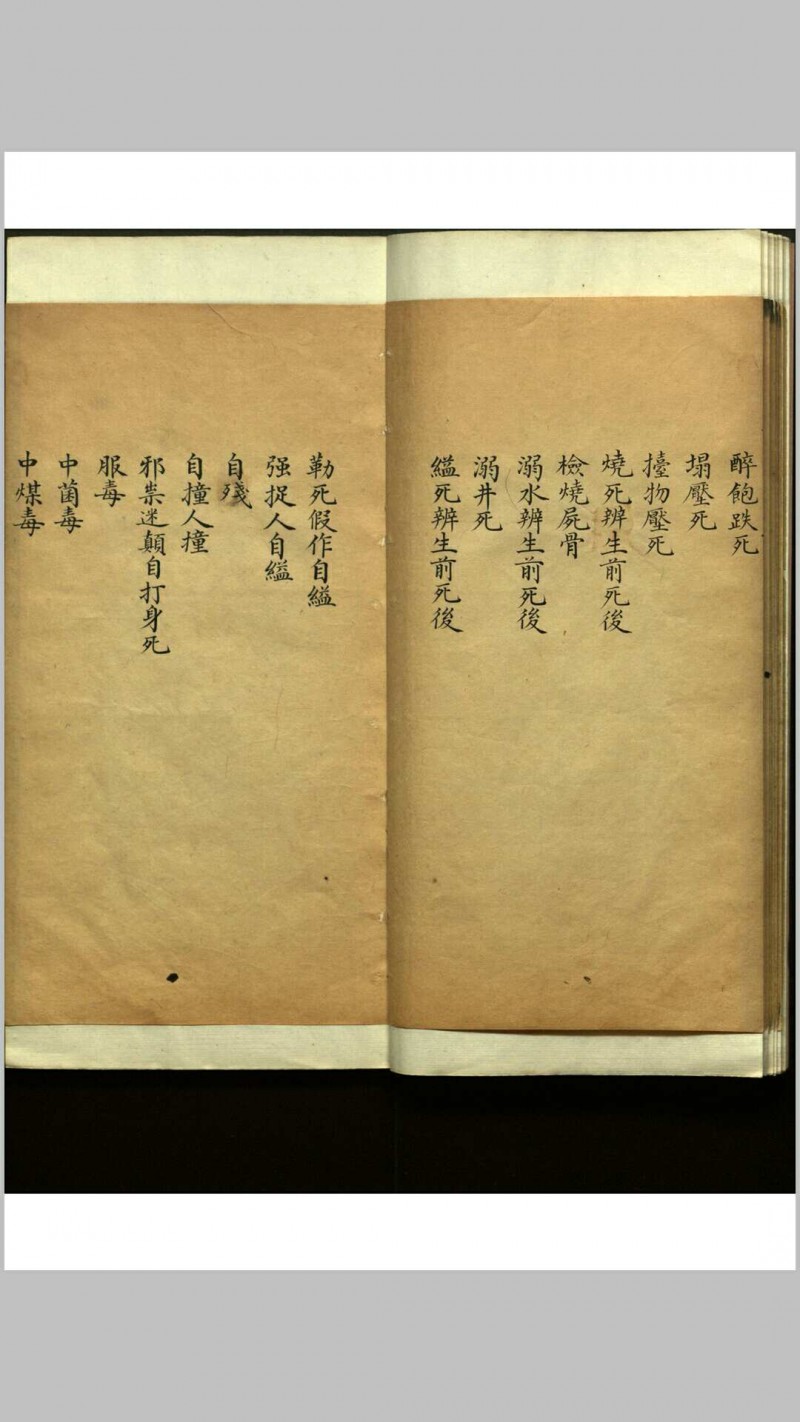 醉飽跌死
塌壓死
擡物壓死
燒死辨生前死後
檢燒屍骨
溺水辨生前死後
溺井死
縊死辨生前死後
勒死假作自縊
强捉人自縊
自殘
自撞人撞
邪祟迷顛自打身死
服毒
中菌毒
中煤毒